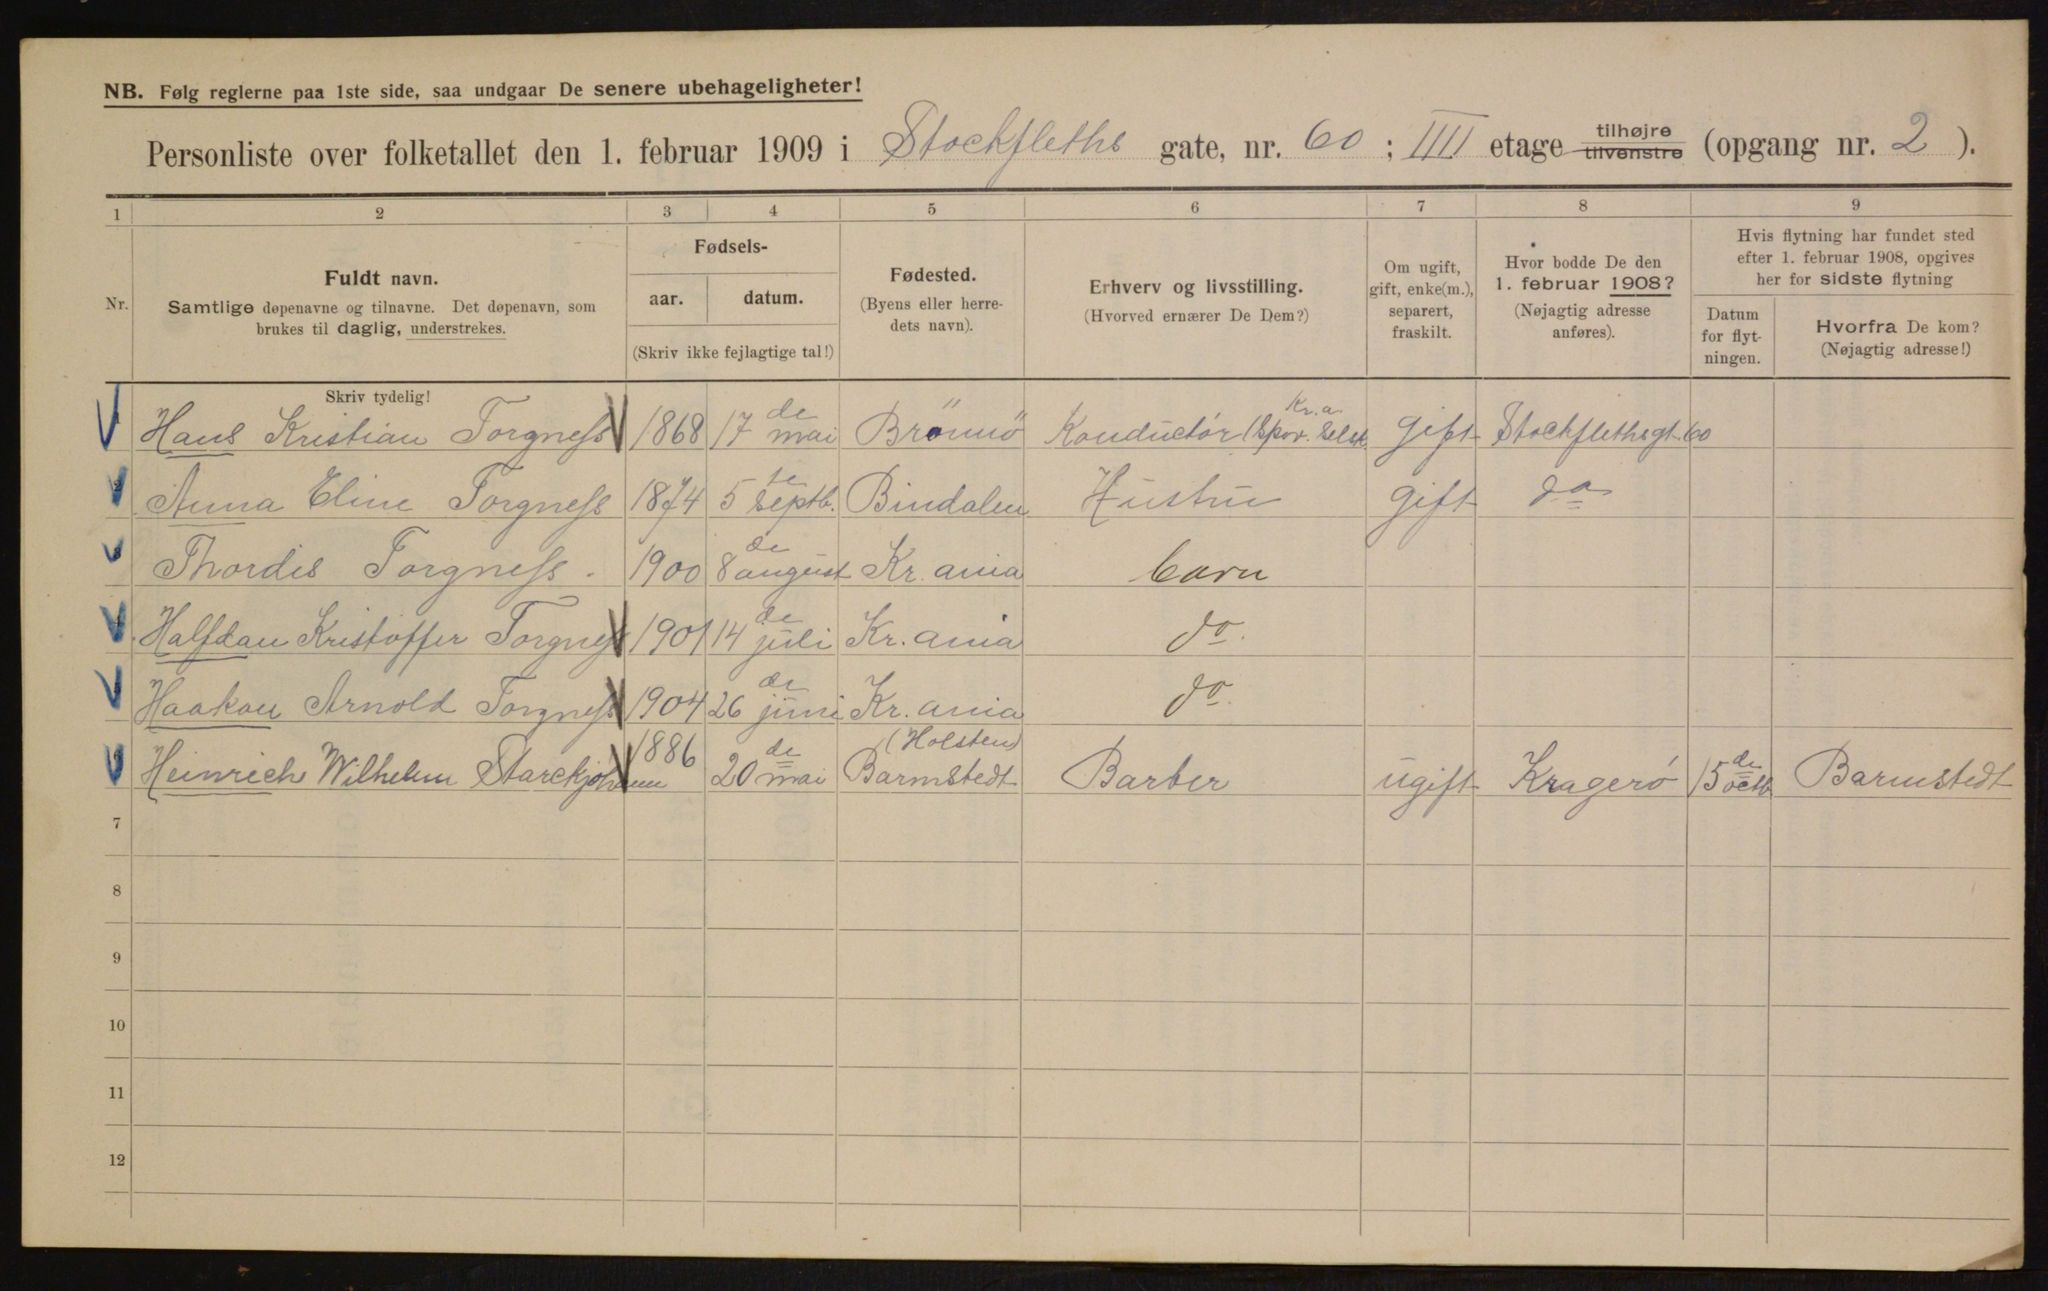 NB. Følg reglerne paa 1ste side, saa undgaar De senere ubehageligheter!
Personliste over folketallet den 1. februar 1909 i Stockfleths gate, nr. 60 ; IIII etage tilhøjre tilvenstre (opgang nr. 2 ).
1 2 3 4 5 6 7 8 9
Nr.
Fuldt navn.
Samtlige døpenavne og tilnavne. Det døpenavn, som
brukes til daglig, understrekes.
Fødsels-
aar. datum.
(Skriv ikke fejlagtige tal!)
Fødested.
(Byens eller herre-
dets navn).
Erhverv og livsstilling.
(Hvorved ernærer De Dem?)
Om ugift,
gift, enke(m.),
separert,
fraskilt.
Hvor bodde De den
1. februar 1908?
(Nøjagtig adresse
anføres).
Hvis flytning har fundet sted
efter 1. februar 1908, opgives
her for sidste flytning
Datum
for flyt-
ningen.
Hvorfra De kom?
(Nøjagtig adresse!)
Skriv tydelig!
Hans Kristian Torgness 1868 17de mai Brönnö Konductör Kr.a. Spor. Selsk. gift Stockflethsgt. 60
2 Anna Eline Torgness 1874 5te Septb. Bindalen Hustru gift do
3 Thordis Torgness. 1900 8de august Kr.ania barn
4 Halfdan Kristoffer Torgness 1901 14de juli Kr.ania do.
Haakon Arnold Torgness 1904 26de juni Kr.ania do.
Heinrich Wilhelm Starckjohann 1886 20de mai Barmstedt (Holsten) Barber ugift Kragerö 15de octb. Barmstedt
7
8
9
10
11
12